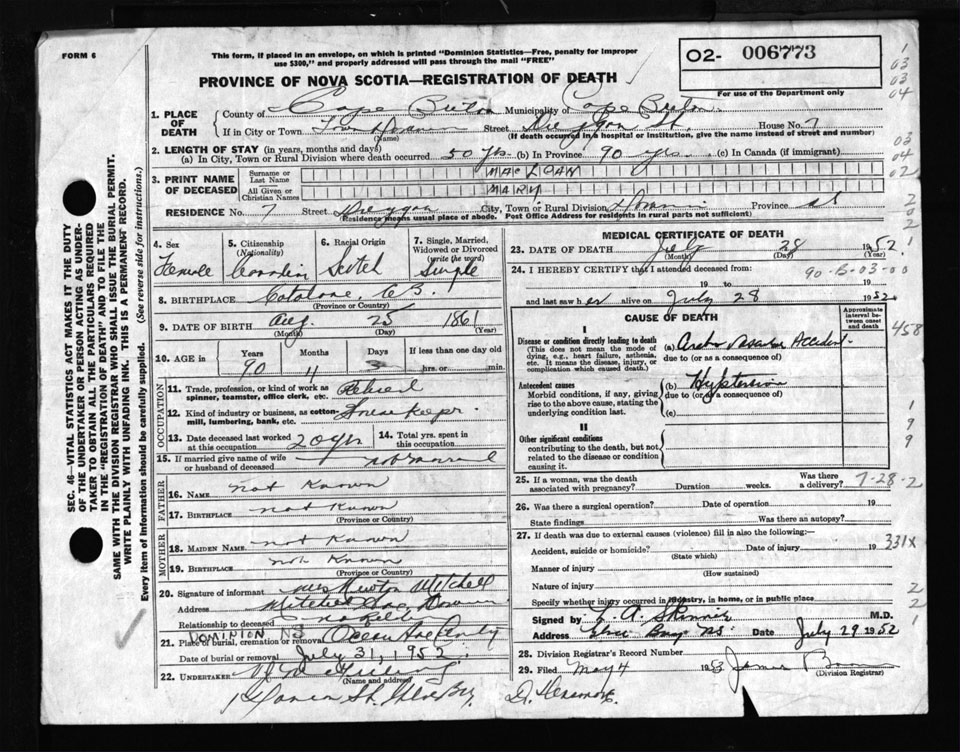 FORM 6
This form, if placed in an envelope, on which is printed "Dominion Statistics—Free, penalty for improper
use $300," and properly addressed will pass through the mail "FREE"
02- 006773
For use of the Department only
PROVINCE OF NOVA SCOTIA—REGISTRATION OF DEATH
1. PLACE OF DEATH
County of Cape Breton Municipality of Cape Breton
If in City or Town Street House No. 7
(Name) (If death occurred in a hospital or institution, give the name instead of street and number)
2. LENGTH OF STAY (in years, months and days)
(a) In City, Town or Rural Division where death occurred 50 yrs (b) In Province 90 yrs. (c) In Canada (if immigrant)
3. PRINT NAME OF DECEASED
Surname or Last Name MACLEAN
All Given or Christian Names MARY
RESIDENCE No. 7 Street City, Town or Rural Division Province
(Residence means usual place of abode. Post Office Address for residents in rural parts not sufficient)
4. Sex Female
5. Citizenship (Nationality) Canadian
6. Racial Origin Scotch
7. Single, Married, Widowed or Divorced (write the word) Single
8. BIRTHPLACE Catalone, C.B.
(Province or Country)
9. DATE OF BIRTH Aug. 25 1861
(Month) (Day) (Year)
10. AGE in Years Months Days If less than one day
90 11 3 hrs. or min.
OCCUPATION
11. Trade, profession, or kind of work as spinner, teamster, office clerk, etc. Retired
12. Kind of industry or business, as cotton-mill, lumbering, bank, etc. House Keeper.
13. Date deceased last worked at this occupation 20 yrs
14. Total yrs. spent in this occupation
15. If married give name of wife or husband of deceased not married
FATHER
16. NAME not Known
17. BIRTHPLACE not Known
(Province or Country)
MOTHER
18. MAIDEN NAME not Known
19. BIRTHPLACE not Known
(Province or Country)
20. Signature of informant Mrs Newton Mitchell
Address Mitchell
Relationship to deceased
21. Place of burial, cremation or removal DOMINION NS
Date of burial or removal July 31, 1952.
22. UNDERTAKER
(Name and address)
MEDICAL CERTIFICATE OF DEATH
23. DATE OF DEATH July 28 1952.
(Month) (Day)
24. I HEREBY CERTIFY that I attended deceased from:
90-B-03-00
19 to 19
and last saw her alive on July 28 1952.
CAUSE OF DEATH
Approximate interval between onset and death
I
Disease or condition directly leading to death
(This does not mean the mode of dying, e.g., heart failure, asthenia, etc. It means the disease, injury, or complication which caused death.)
(a) Accident.
due to (or as a consequence of)
Antecedent causes
Morbid conditions, if any, giving rise to the above cause, stating the underlying condition last.
(b) Hypertension
due to (or as a consequence of)
(c)
II
Other significant conditions
contributing to the death, but not related to the disease or condition causing it.
25. If a woman, was the death associated with pregnancy? Duration weeks. Was there a delivery?
7-28-2
26. Was there a surgical operation? Date of operation 19
State findings Was there an autopsy?
27. If death was due to external causes (violence) fill in also the following:—
Accident, suicide or homicide? Date of injury 19
(State which)
331X
Manner of injury
(How sustained)
Nature of injury
Specify whether injury occurred in industry, in home, or in public place
Signed by M.D.
Address Glace Bay NS Date July 29 1952
28. Division Registrar's Record Number
29. Filed May 4 1953 James
(Division Registrar)
SEC. 46—VITAL STATISTICS ACT MAKES IT THE DUTY
OF THE UNDERTAKER OR PERSON ACTING AS UNDER-
TAKER TO OBTAIN ALL THE PARTICULARS REQUIRED
IN THE "REGISTRATION OF DEATH" AND TO FILE THE
SAME WITH THE DIVISION REGISTRAR WHO SHALL ISSUE THE BURIAL PERMIT.
WRITE PLAINLY WITH UNFADING INK. THIS IS A PERMANENT RECORD.
Every item of information should be carefully supplied. (See reverse side for instructions.)
1
03
03
04
03
04
02
2
0
2
2
458
1
9
9
2
2